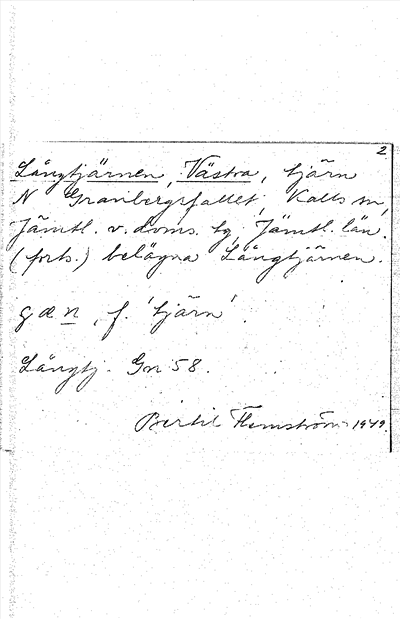 2
Långtjärnen, Västra, tjärn
N Granbergsfallet, Kalls sn,
Jämtl. v. doms. tg, Jämtl. län.
(forts.) belägna Långtjärnen.
gæn, f. 'tjärn'.
Långtj. Gn 58.
Bertil Flemström 1979.